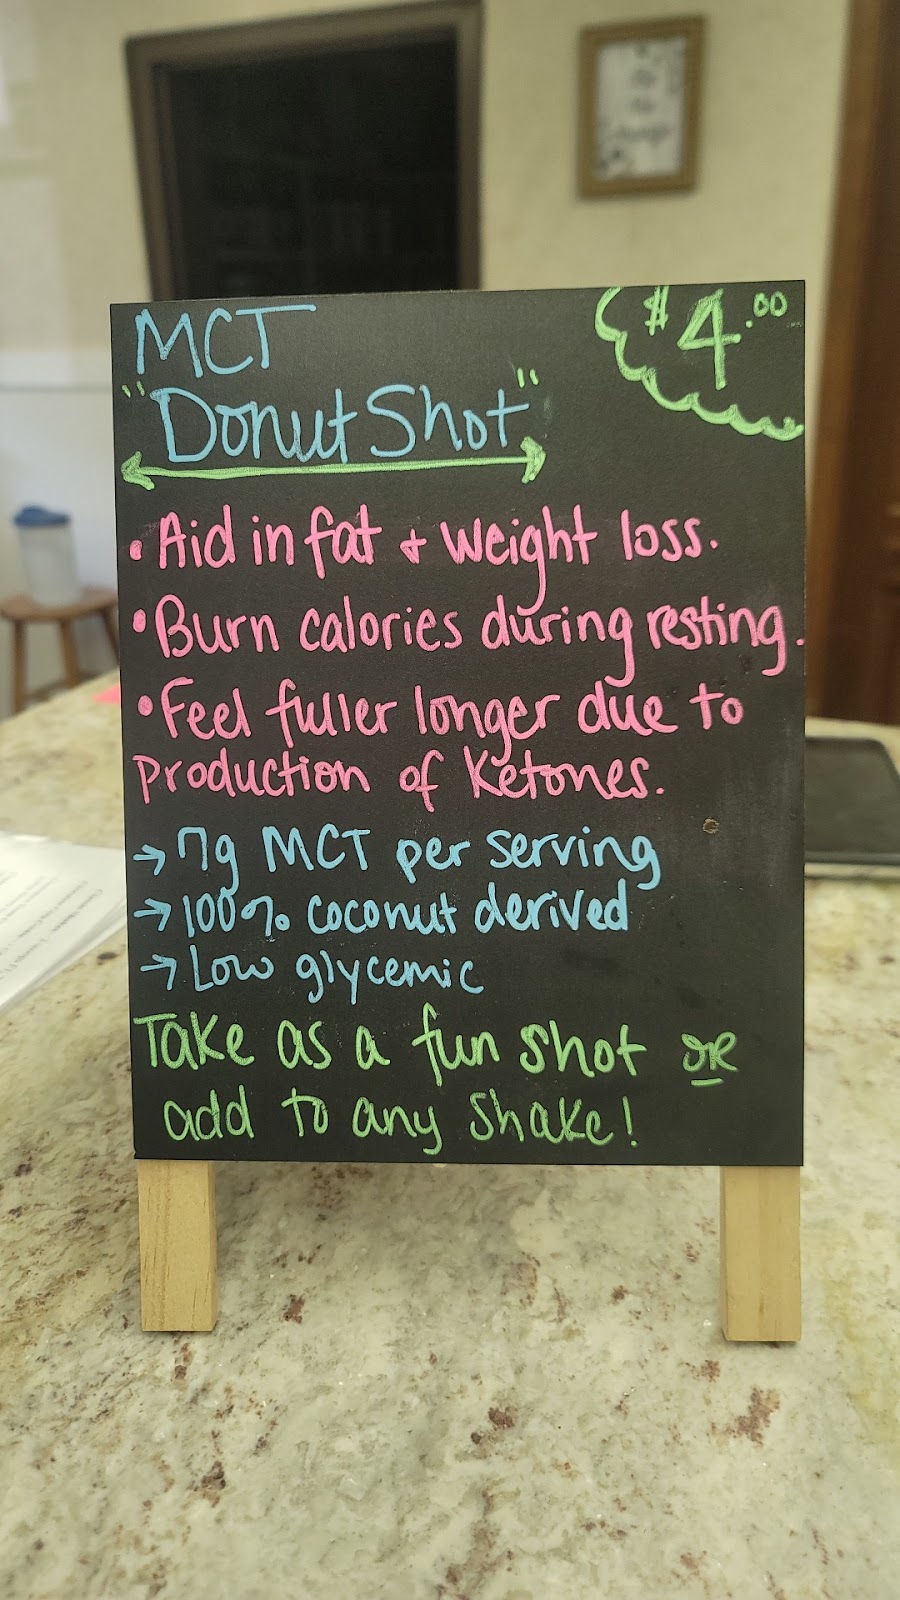 MCT
$4.00
"Donut Shot"
• Aid in fat + weight loss.
• Burn calories during resting.
• Feel fuller longer due to
production of Ketones.
→ 7g MCT per serving
→ 100% coconut derived
→ Low glycemic
Take as a fun shot or
add to any shake!